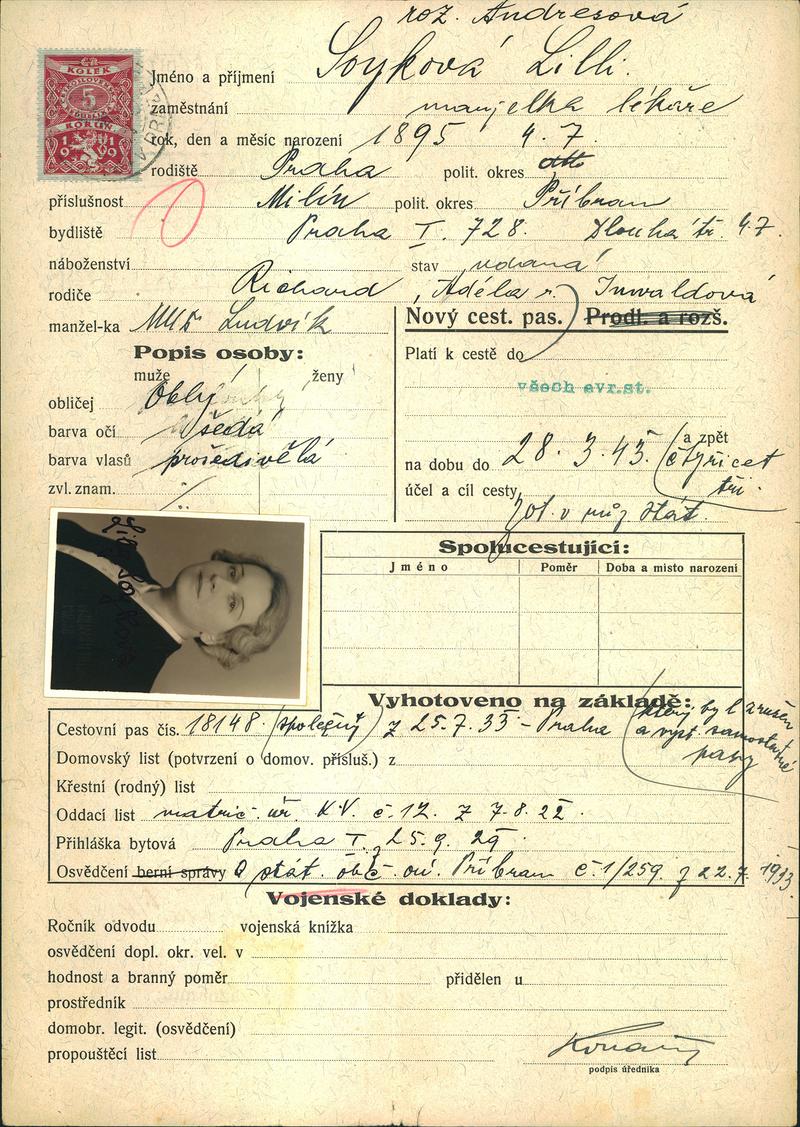 roz. Andresová
ČS
KOLEK
5
KORUN
19 19
Jméno a příjmení Soyková Lilli.
zaměstnání manželka lékaře
rok, den a měsíc narození 1895 4. 7.
rodiště Praha polit. okres dtto
příslušnost Milín polit. okres Příbram
bydliště Praha I. 728. Dlouhá tř. 47.
náboženství stav vdaná
rodiče Richard, Adéla r. Inwaldová
manžel-ka MUDr Ludvík
Nový cest. pas. Prodl. a rozš.
Popis osoby:
muže ženy
obličej Oblý
barva očí šedá
barva vlasů prošedivělá
zvl. znam.
Platí k cestě do
všech evr.st.
a zpět
na dobu do 28. 3. 43. (čtyřicet
tři.
účel a cíl cesty
pob. v růz. stát.
Spolucestující:
Jméno Poměr Doba a misto narození
Vyhotoveno na základě:
Cestovní pas čís. 18148. (společný) z 25.7.33 - Praha (který byl zrušen
a vyst. samostatné
pasy
Domovský list (potvrzení o domov. přísluš.) z
Křestní (rodný) list
Oddací list matric. úř. K.V. č. 12. z 7.8.22.
Přihláška bytová Praha I. 25. 9. 29.
Osvědčení berní správy o stát. obč. ou. Příbram č. 1/259. z 22.7. 1933.
Vojenské doklady:
Ročník odvodu vojenská knížka
osvědčení dopl. okr. vel. v
hodnost a branný poměr přidělen u
prostředník
domobr. legit. (osvědčení)
propouštěcí list
podpis úředníka